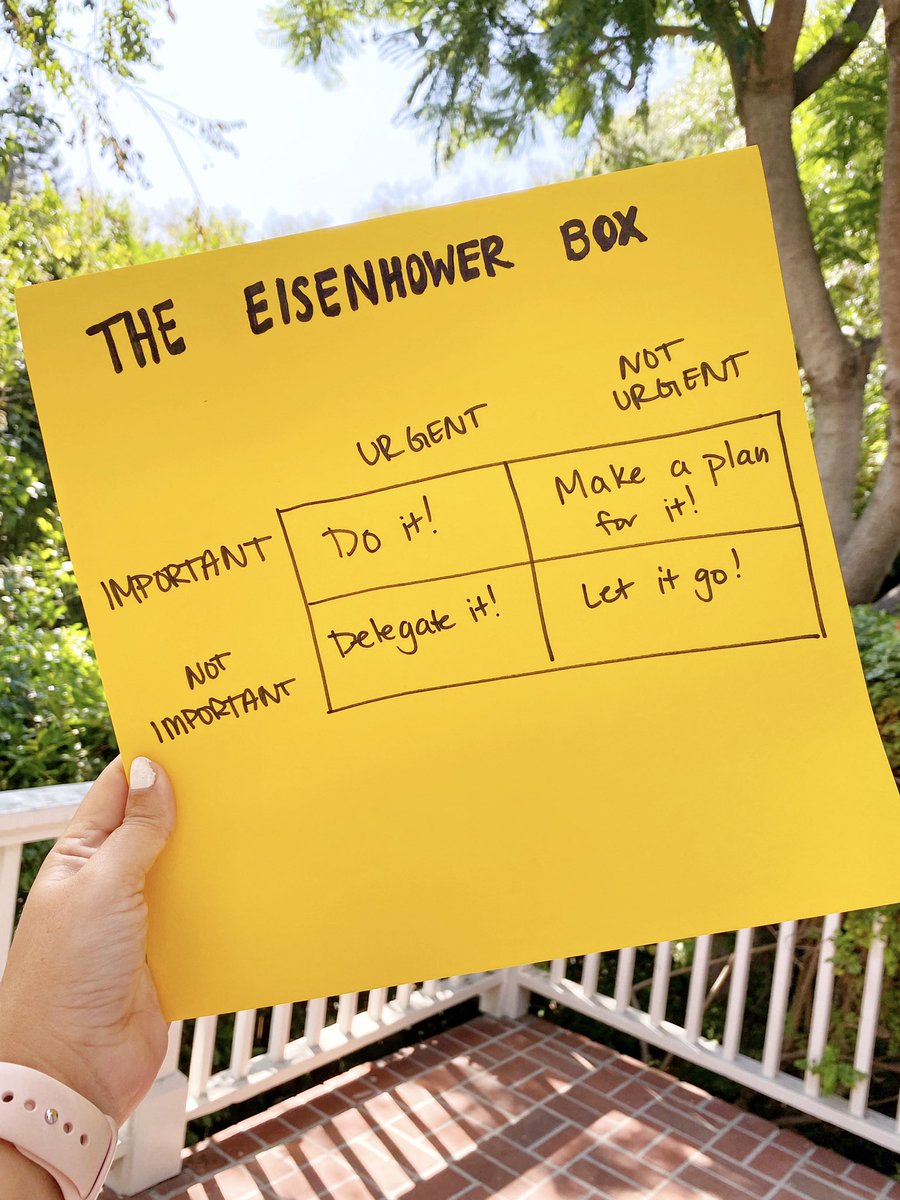 THE EISENHOWER BOX
URGENT
NOT
URGENT
IMPORTANT
Do it!
Make a plan
for it!
NOT
IMPORTANT
Delegate it!
Let it go!